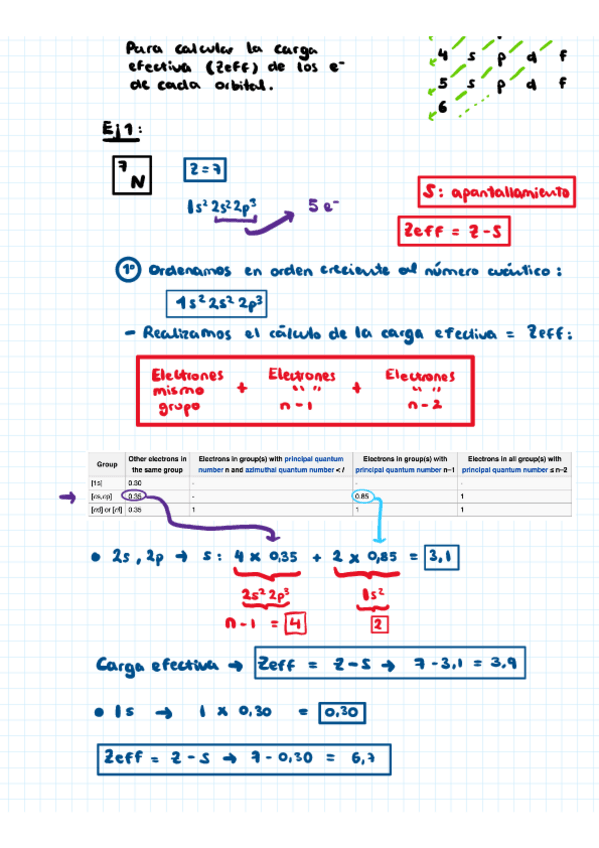 Para calcular la carga
efectiva (Zeff) de los e⁻
de cada orbital.
4 s p d f
5 s p d f
6
Ej 1:
7
N
Z = 7
1s² 2s² 2p³
5 e⁻
S: apantallamiento
Zeff = Z - S
1º Ordenamos en orden creciente al número cuántico:
1s² 2s² 2p³
- Realizamos el cálculo de la carga efectiva = Zeff:
Electrones mismo grupo + Electrones " " n-1 + Electrones " " n-2
Group | Other electrons in the same group | Electrons in group(s) with principal quantum number n and azimuthal quantum number < l | Electrons in group(s) with principal quantum number n–1 | Electrons in all group(s) with principal quantum number ≤ n–2
[1s] 0.30 - - -
[ns,np] 0.35 - 0.85 1
[nd] or [nf] 0.35 1 1 1
• 2s, 2p → S: 4 x 0,35 + 2 x 0,85 = 3,1
2s² 2p³ 1s²
n - 1 = 4 2
Carga efectiva → Zeff = Z - S → 7 - 3,1 = 3,9
• 1s → 1 x 0,30 = 0,30
Zeff = Z - S → 7 - 0,30 = 6,7